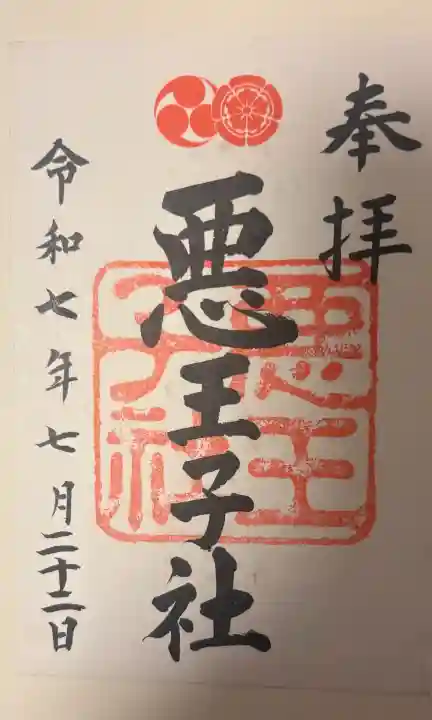 奉拝
悪王子社
悪王
子社
令和七年七月二十二日